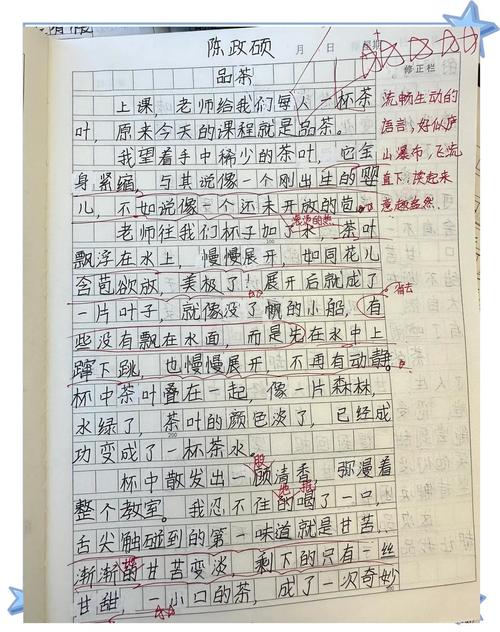 陈政硕 月 日 星期
品茶 修正栏
上课，老师给我们每人一杯茶
叶，原来今天的课程就是品茶。
我望着手中稀少的茶叶，它全
身紧缩，与其说像一个刚出生的婴
儿，不如说像一个还未开放的苞。
老师往我们杯子加了水，茶叶
飘浮在水上，慢慢展开，如同花儿
含苞欲放，美极了，展开后就成了
一片叶子，就像没了帆的小船，有
些没有飘在水面，而是先在水中上
蹿下跳，也慢慢展开，不再有动静。
杯中茶叶叠在一起，像一片森林，
水绿了，茶叶的颜色淡了，已经成
功变成了一杯茶水。
杯中散发出一顾清香，弥漫着
整个教室。我忍不住的喝了一口，
舌尖触碰到的第一味道就是甘苦，
渐渐的甘苦变淡，剩下的只有一丝
甘甜，一小口的茶，成了一次奇妙
流畅生动的
语言，好似庐
山瀑布，飞流
直下，读起来
意趣盎然.
省去
股
100
200